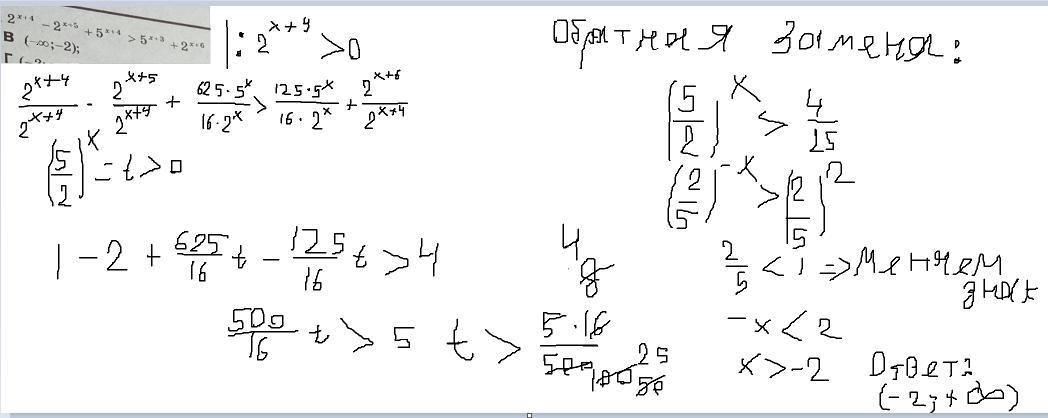 2^{x+4} - 2^{x+5} + 5^{x+4} > 5^{x+3} + 2^{x+6}
В (-∞;-2);
|: 2^{x+4} > 0
\frac{2^{x+4}}{2^{x+4}} - \frac{2^{x+5}}{2^{x+4}} + \frac{625·5^x}{16·2^x} > \frac{125·5^x}{16·2^x} + \frac{2^{x+6}}{2^{x+4}}
(\frac{5}{2})^x = t > 0
1 - 2 + \frac{625}{16}t - \frac{125}{16}t > 4
\frac{500}{16}t > 5 t > \frac{5·16}{500} 4 8 100 50 25
Обратная замена:
(\frac{5}{2})^x > \frac{4}{25}
(\frac{2}{5})^{-x} > (\frac{2}{5})^2
\frac{2}{5} < 1 => меняем
знак
-x < 2
x > -2 Ответ:
(-2;+∞)